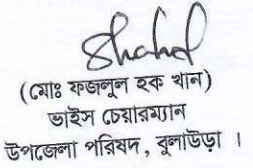 (মোঃ ফজলুল হক খান)
ভাইস চেয়ারম্যান
উপজেলা পরিষদ, কুলাউড়া ।